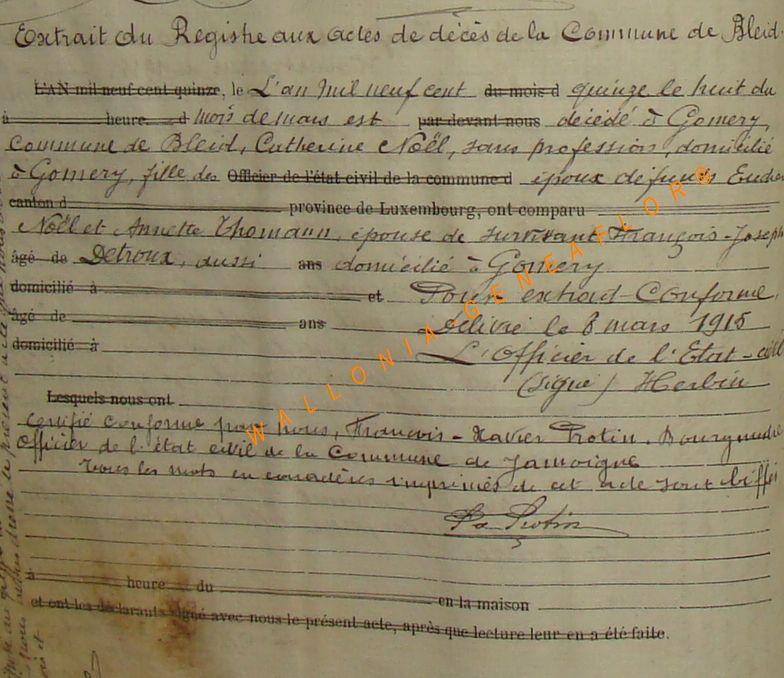 Extrait du Registre aux actes de décès de la Commune de Bleid.
L'AN mil neuf cent quinze, le L'an mil neuf cent du mois d quinze le huit du
à heure d mois de mars est par-devant nous décédé à Gomery,
commune de Bleid, Catherine Noël, sans profession, domicilié
à Gomery, fille des Officier de l'état civil de la commune d époux défunts
canton d province de Luxembourg, ont comparu
Noël et Annette Thomann, épouse de survivant François-Joseph
âgé de Detroux, aussi ans domicilié à Gomery
domicilié à et Pour extrait Conforme,
âgé de ans Délivré le 8 mars 1915
domicilié à L'Officier de l'Etat-civil
(signé) Herbin
Lesquels nous ont
Certifié conforme par nous, François-Xavier Protin, Bourgmestre
Officier de l'état civil de la Commune de Jamoigne
Tous les mots en caractères imprimés de cet acte sont biffés
Protin
à heure du en la maison
et ont les déclarants signé avec nous le présent acte, après que lecture leur en a été faite.
WALLONIA-GENEAFLOR®